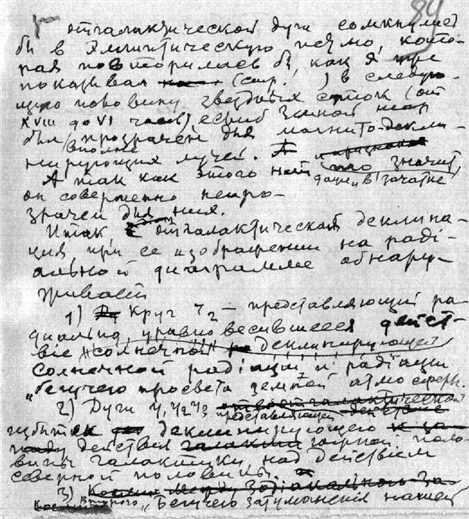 89
отгалактической дуги сомкнулись
бы в эллиптическую петлю, кото-
рая повторилась бы, как я уже
показывал (стр. ) в следую-
щую половину звездных суток (от
XVIII до VI часов) если б земной шар
был вполне прозрачен для магнито-декли-
нирующих лучей.
А так как этого нет, то значит,
он совершенно непро-
зрачен для них.
Итак отгалактическая деклина-
ция при ее изображении на радi-
альной диаграмме обнару-
живает
1) Круг Ч2 — представляющий ра-
диально уравновесившееся дейст-
вие деклинирующей
солнечной радiации и радiации
„бегучего просвета земной атмосферы.
2) Дуги Ч1Ч2Ч3 представляющей
избыток деклинирующего
действия южной поло-
вины галактики над действием
северной половины.
3)
второго „Бегучего затуманения нашей